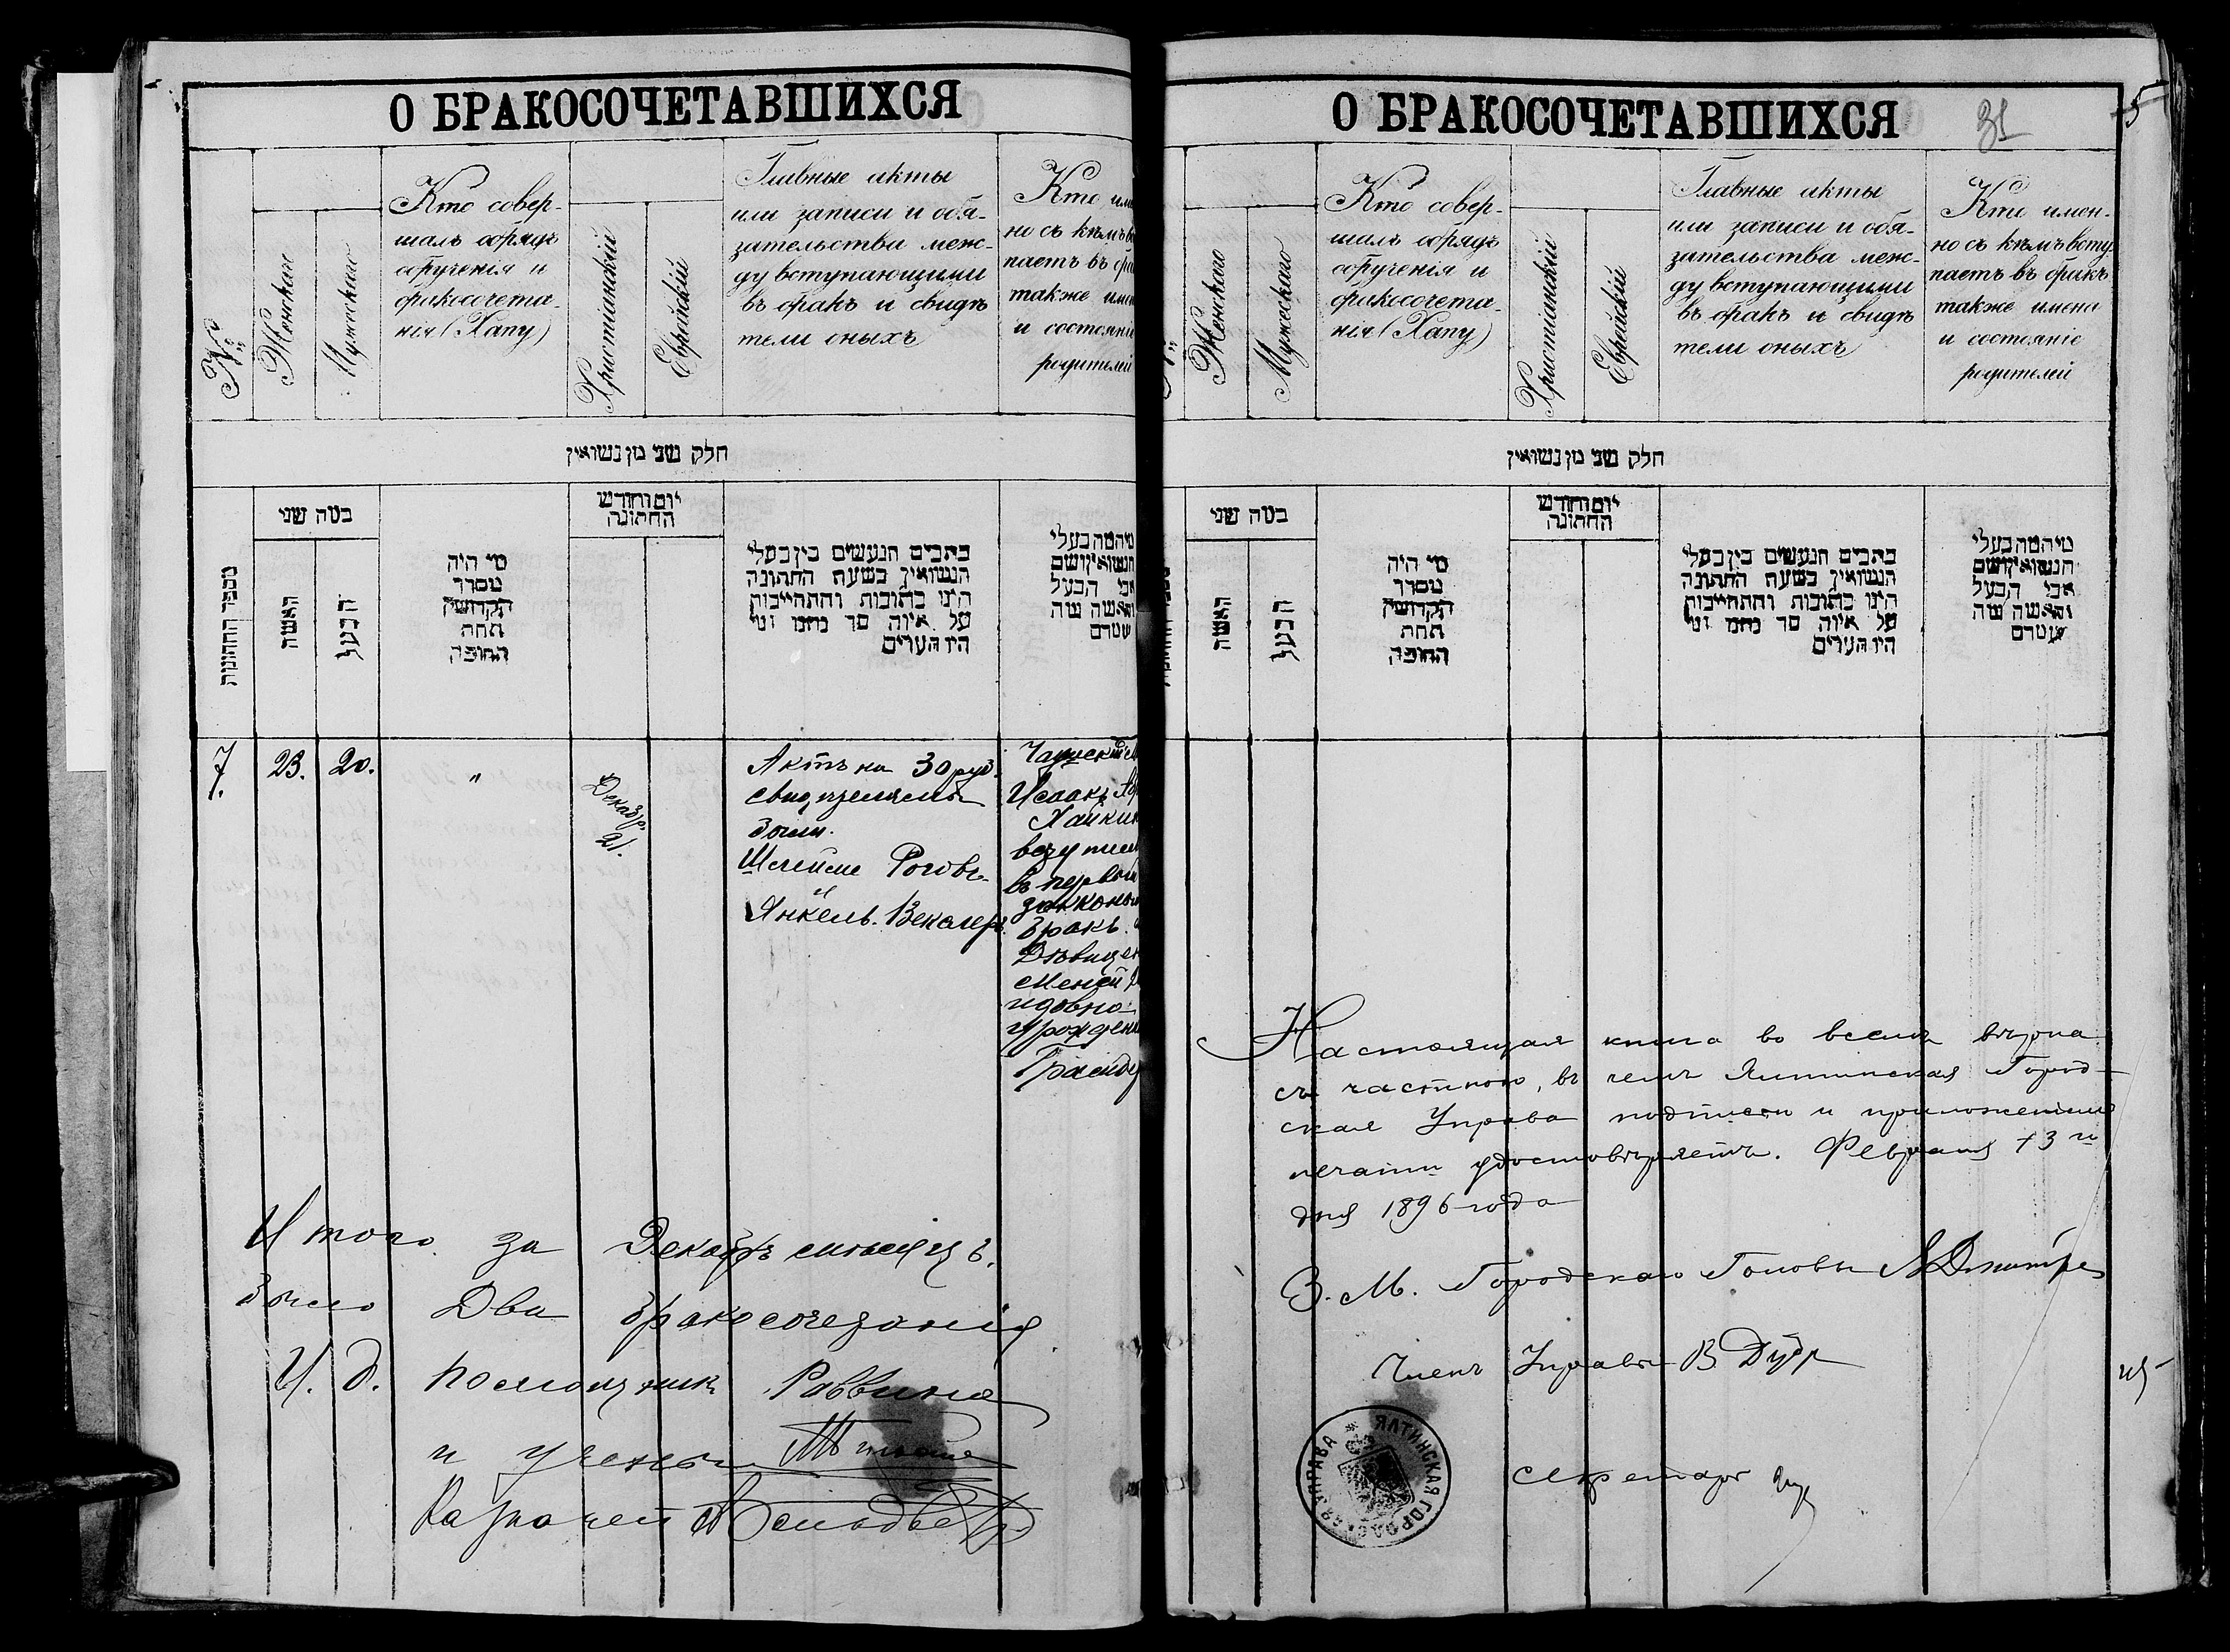 О БРАКОСОЧЕТАВШИХСЯ
№
Женскаго
Мужескаго
Кто совер-
шалъ обрядъ
обрученія и
бракосочета-
нія (Хапу)
Христіанскій
Еврейскій
Главные акты
или записи и обя-
зательства меж-
ду вступающими
въ бракъ и свидѣ
тели оныхъ
Кто име
но съ кѣмъ в
паетъ въ бра
также имен
и состояні
родителей
חלק שני מן נשואין
מספר החתונות
במה שני
האשה
הבעל
מי היה
מסדר
הקדושין
תחת
החופה
יום וחודש
החתונה
כתבים הנעשים בין בעלי
הנשואין בשעת החתונה
היינו כתובות והתחייבות
על איזה סך נתנו ומי
היו העדים
מיהמה בעלי
הנשואין ושם
אבי הבעל
והאשה מה
שטרם
7.
23.
20.
"
Декабр.
21.
Актъ на 30 руб.
свидѣтелями
были.
Шлейме Роговъ
и
Янкель. Векслеръ.
Чаускій м
Исаакъ
Хайкин
вступил
въ первый
законный
бракъ.
Дѣвицею
Меней
идовна
урожден
Итого за Декабрь мѣсяцъ.
было Два бракосочетанія
И. д. помощник Раввина
и ученый
Казначей
О БРАКОСОЧЕТАВШИХСЯ
31
5
Женскаго
Мужескаго
Кто совер-
шалъ обрядъ
обрученія и
бракосочета-
нія (Хапу)
Христіанскій
Еврейскій
Главные акты
или записи и обя-
зательства меж-
ду вступающими
въ бракъ и свидѣ
тели оныхъ
Кто имен-
но съ кѣмъ всту
паетъ въ бракъ
также имена
и состояніе
родителей
חלק שני מן נשואין
במה שני
האשה
הבעל
מי היה
מסדר
הקדושין
תחת
החופה
יום וחודש
החתונה
כתבים הנעשים בין בעלי
הנשואין בשעת החתונה
היינו כתובות והתחייבות
על איזה סך נתנו ומי
היו העדים
מיהמה בעלי
הנשואין ושם
אבי הבעל
והאשה מה
שטרם
Настоящая книга во всемъ вѣрна
съ частною, въ чемъ Ялтинская Город-
ская Управа подписью и приложеніемъ
печати удостовѣряетъ. Февраля 13 го
дня 1896 года
З. М. Городскаго Головы
Членъ Управы В
Секретарь
ЯЛТИНСКАЯ ГОРОДСКАЯ УПРАВА